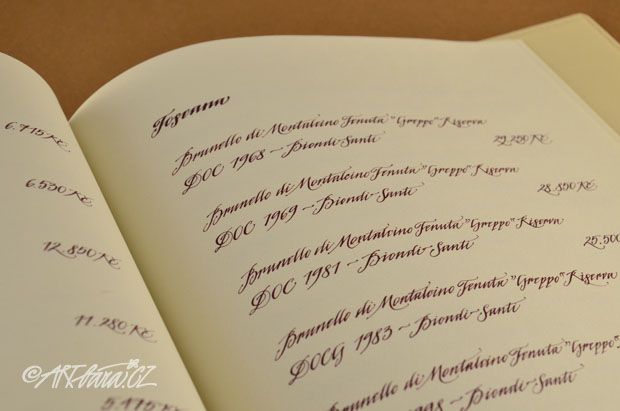 6.715 Kč
6.530 Kč
12.850 Kč
11.280 Kč
5.475 Kč
Toscana
Brunello di Montalcino Tenuta "Greppo" Riserva
DOC 1968 – Biondi-Santi 29.250 Kč
Brunello di Montalcino Tenuta "Greppo" Riserva
DOC 1969 – Biondi-Santi 28.850 Kč
Brunello di Montalcino Tenuta "Greppo" Riserva
DOC 1981 – Biondi-Santi 25.500
Brunello di Montalcino Tenuta "Greppo" Riserva
DOCG 1983 – Biondi-Santi
Brunello di Montalcino Tenuta "Greppo" Riserva
1998 – Biondi-Santi